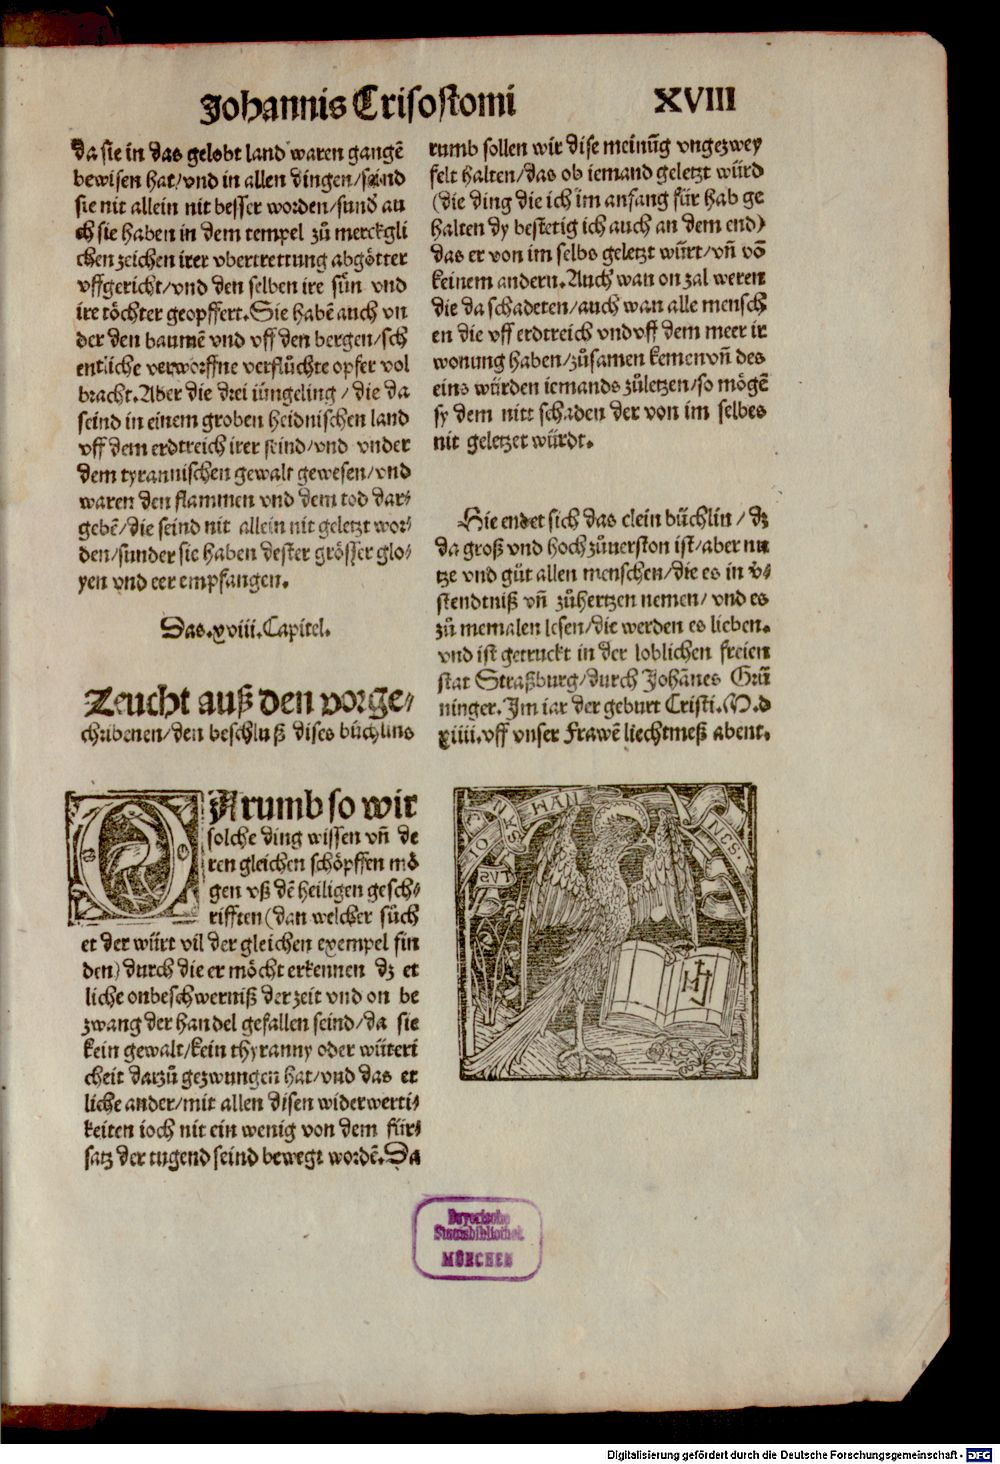 Johannis Crisostomi
XVIII
da sie in das gelobt land waren gangē
bewisen hat/vnd in allen dingen/seind
sie nit allein nit besser worden/sund̕ au
ch sie haben in dem tempel zů merckgli
chen zeichen irer vbertrettung abgötter
vffgericht/vnd den selben ire sün vnd
ire töchter geopffert. Sie habē auch vn
der den baumē vnd vff den bergen/sch
entliche verworffne verflůchte opfer vol
bracht. Aber die drei iüngeling / die da
seind in einem groben heidnischen land
vff dem erdtreich irer feind/vnd vnder
dem tyrannischen gewalt gewesen/vnd
waren den flammen vnd dem tod dar⸗
gebē/die seind nit allein nit geletzt wor⸗
den/sunder sie haben dester grösser glo⸗
yen vnd eer empfangen.
Das .xviii. Capitel.
Zeucht auß den vorge⸗
schribenen/den beschluß dises büchlins
DArumb so wir
solche ding wissen vñ de
ren gleichen schöpffen mö
gen vß dē heiligen gesch⸗
rifften (dan welcher sůch
et der würt vil der gleichen exempel fin
den) durch die er möcht erkennen dz et
liche onbeschwerniß der zeit vnd on be
zwang der handel gefallen seind/da sie
kein gewalt/kein thyranny oder wüteri
cheit darzů gezwungen hat/vnd das et
liche ander/mit allen disen widerwerti⸗
keiten ioch nit ein wenig von dem für⸗
satz der tugend seind bewegt wordē. Da
rumb sollen wir dise meinūg vngezwey
felt halten/das ob iemand geletzt würd
(die ding die ich im anfang für hab ge
halten dy bestetig ich auch an dem end)
das er von im selbs geletzt würt/vñ vō
keinem andern. Auch wan on zal weren
die da schadeten/auch wan alle mensch
en die vff erdtreich vnd vff dem meer ir
wonung haben/zůsamen kemen vñ des
eins würden iemands zůletzen/so mögē
sy dem nitt schaden der von im selbes
nit geletzet würdt.
Hie endet sich das clein büchlin / dz
da groß vnd hoch zůuerston ist/aber nu
tze vnd gůt allen menschen/die es in v̕⸗
stendtniß vñ zůhertzen nemen/ vnd es
zů memalen lesen/die werden es lieben.
vnd ist getruckt in der loblichen freien
stat Straßburg/durch Johānes Grü
ninger. Im iar der geburt Cristi. M.d
xiiii. vff vnser Frawē liechtmeß abent.
Bayerische
Staatsbibliothek
MÜNCHEN
Digitalisierung gefördert durch die Deutsche Forschungsgemeinschaft - DFG